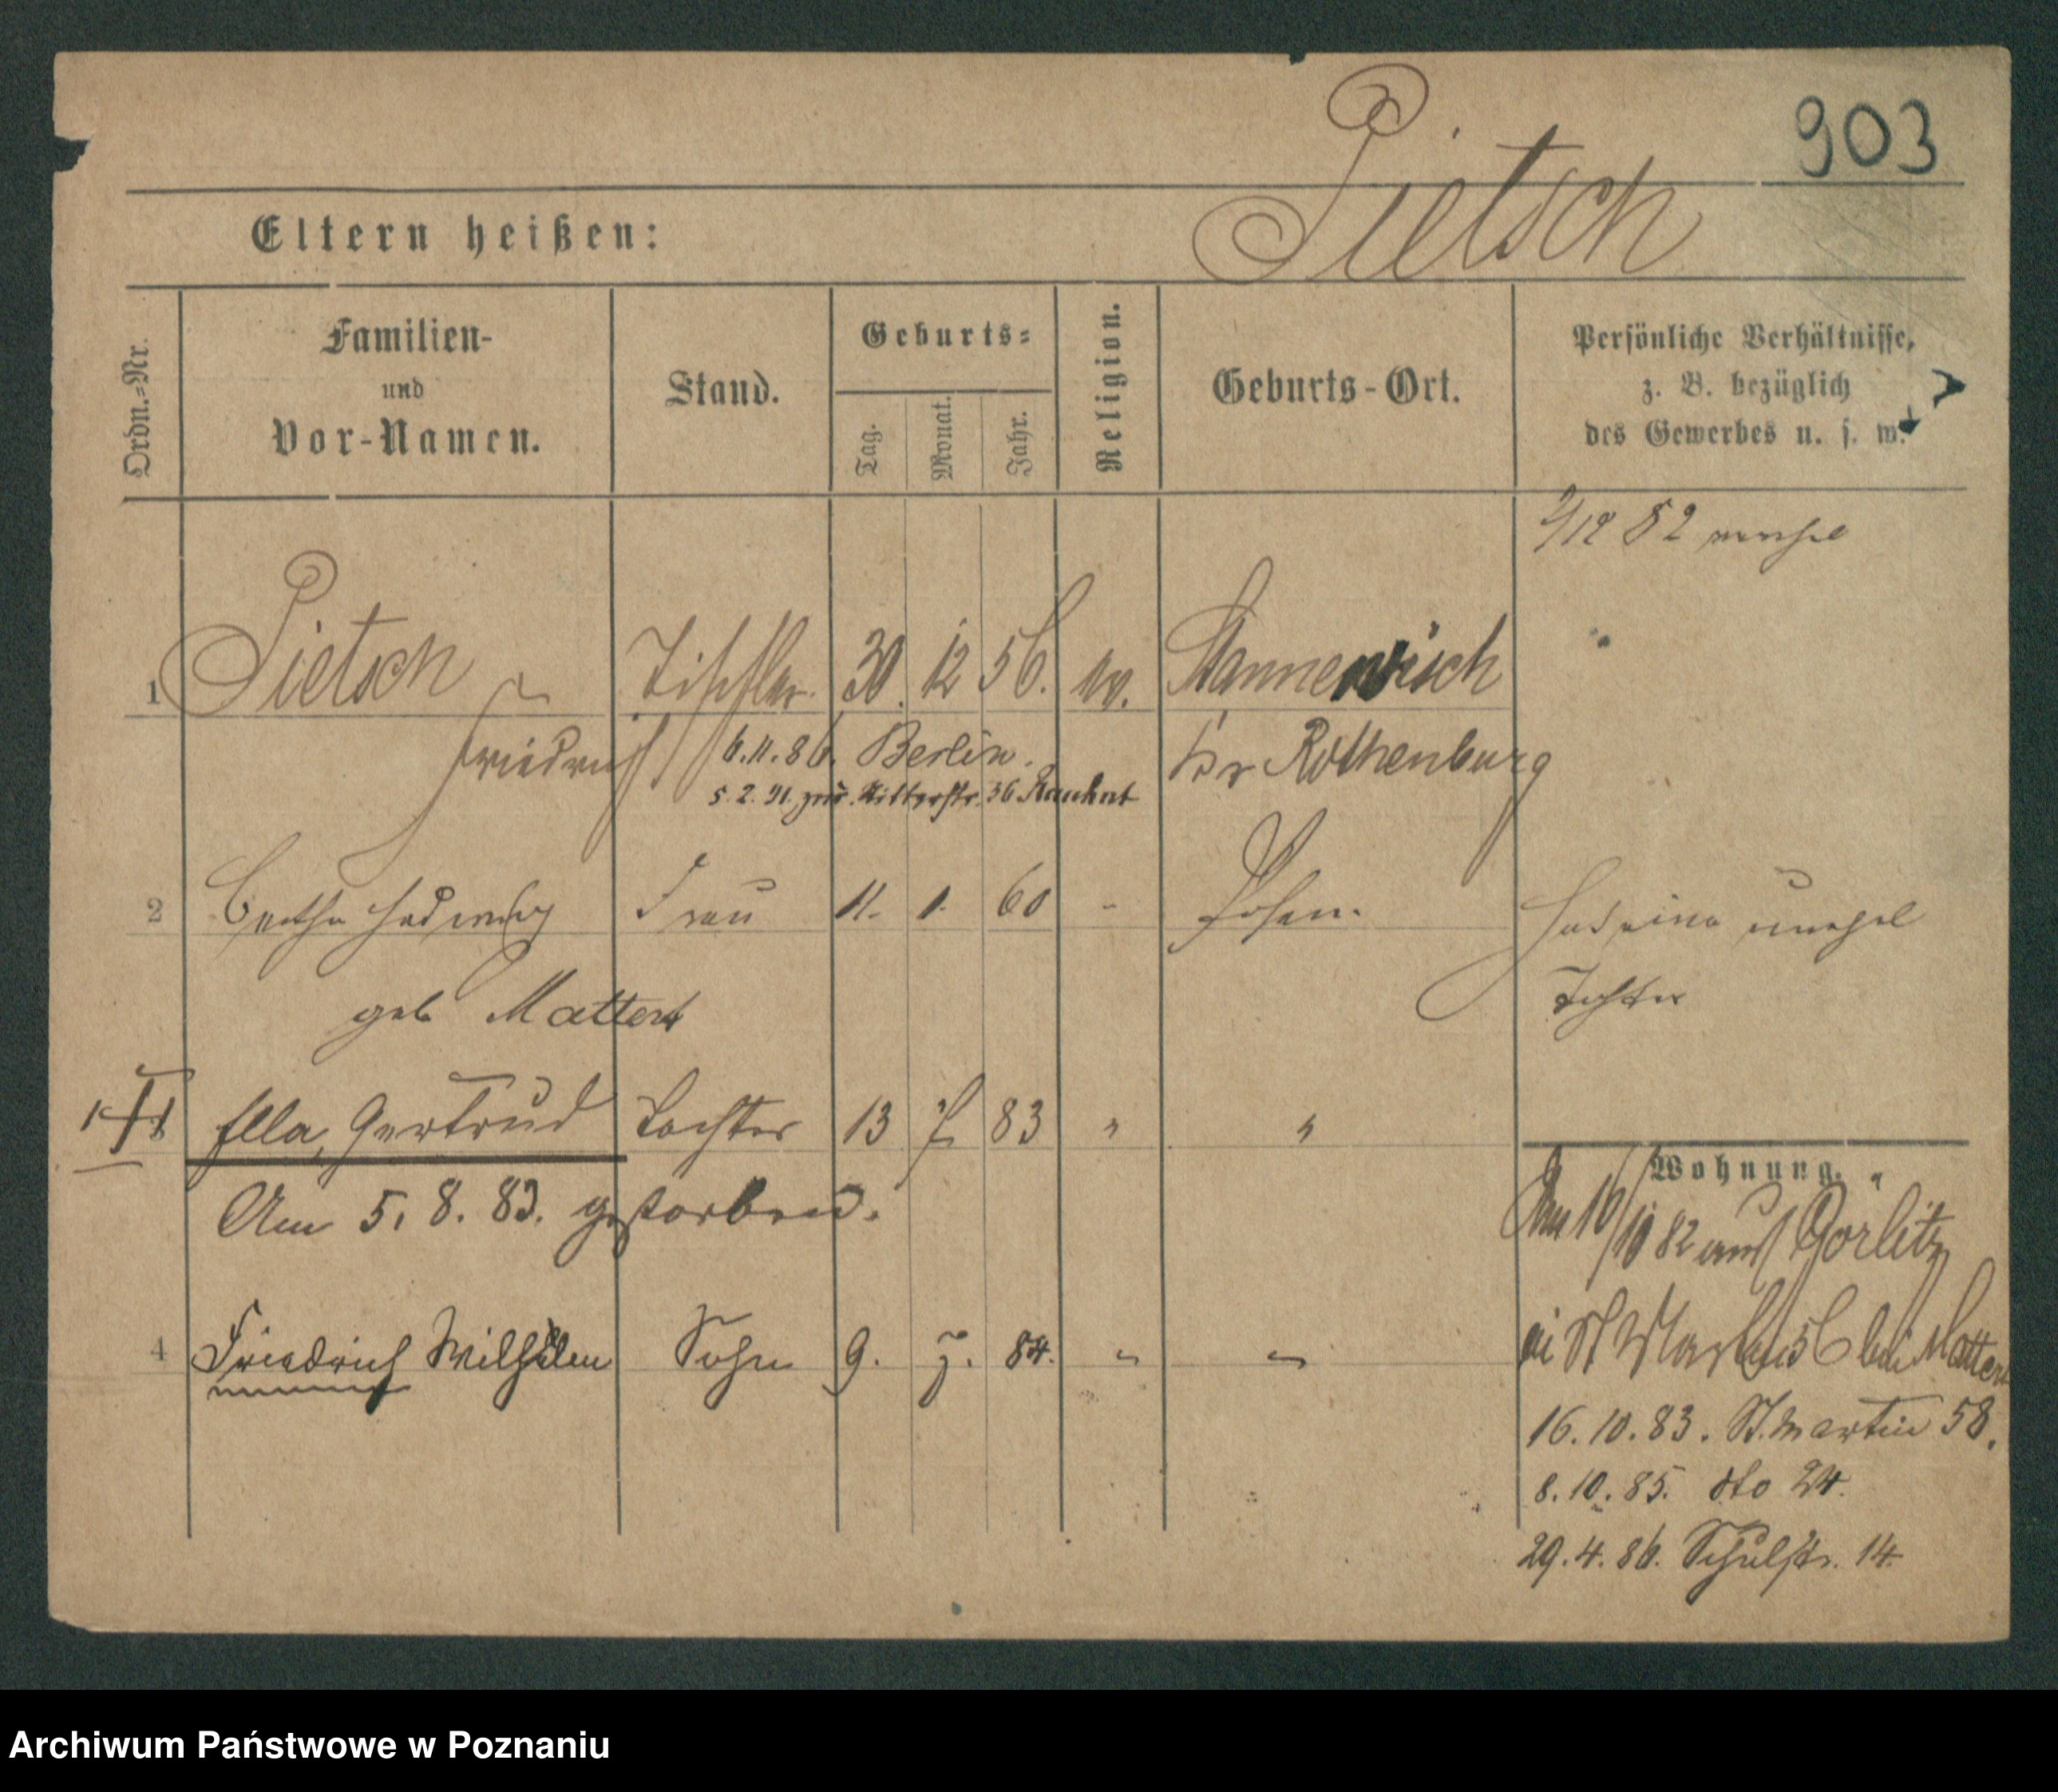 903
Pietsch
Eltern heißen:
Ordn.=Nr.
Familien-
und
Vor-Namen.
Stand.
Geburts=
Tag.
Monat.
Jahr.
Religion.
Geburts-Ort.
Persönliche Verhältnisse,
z. B. bezüglich
des Gewerbes u. s. w.
82
1 Pietsch Tischler 30. 12 56. ev.
Friedrich 6.11.86. Berlin. Kr Rothenburg
5. 2. 91. zur. Ritterstr. 36
2 Bertha Hedwig Frau 11. 1. 60 - Posen. Hat eine unehel
geb Mattert Tochter
Ella, Gertrud Tochter 13 7 83 " "
Wohnung.
Am 5. 8. 83. gestorben.
Am 16/10 82 aus Görlitz
4 Friedrich Wilhelm Sohn 9. 7. 84. " "
St Martin 56 bei Mattert
16. 10. 83. St. Martin 58.
8. 10. 85. dto 24.
29. 4. 86. Schulstr. 14.
Archiwum Państwowe w Poznaniu